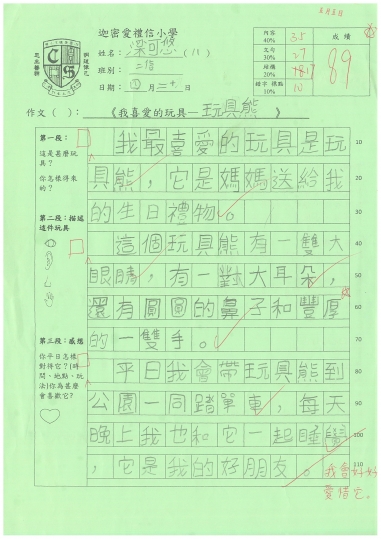 4月8日
迦密愛禮信小學
姓名: 梁可悠 (11)
班別: 二信
日期: 四月三十日
內容 40% 35
文句 30% 27
結構 20%
錯字 標點 10% 10
成績
89
作文 ( ): 《我喜愛的玩具—玩具熊》
第一段:
這是甚麼玩具?
你怎樣得來的?
第二段:描述這件玩具
第三段:感想
你平日怎樣對待它?(時間、地點、玩法)你為甚麼會喜歡它?
我最喜愛的玩具是玩 10
具熊,它是媽媽送給我 20
的生日禮物。 30
這個玩具熊有一雙大 40
眼睛,有一對大耳朵, 50
還有圓圓的鼻子和豐厚 60
的一雙手。 70
平日我會帶玩具熊到 80
公園一同踏單車,每天 90
晚上我也和它一起睡覺 100
,它是我的好朋友。 110
我會好好
愛惜它。